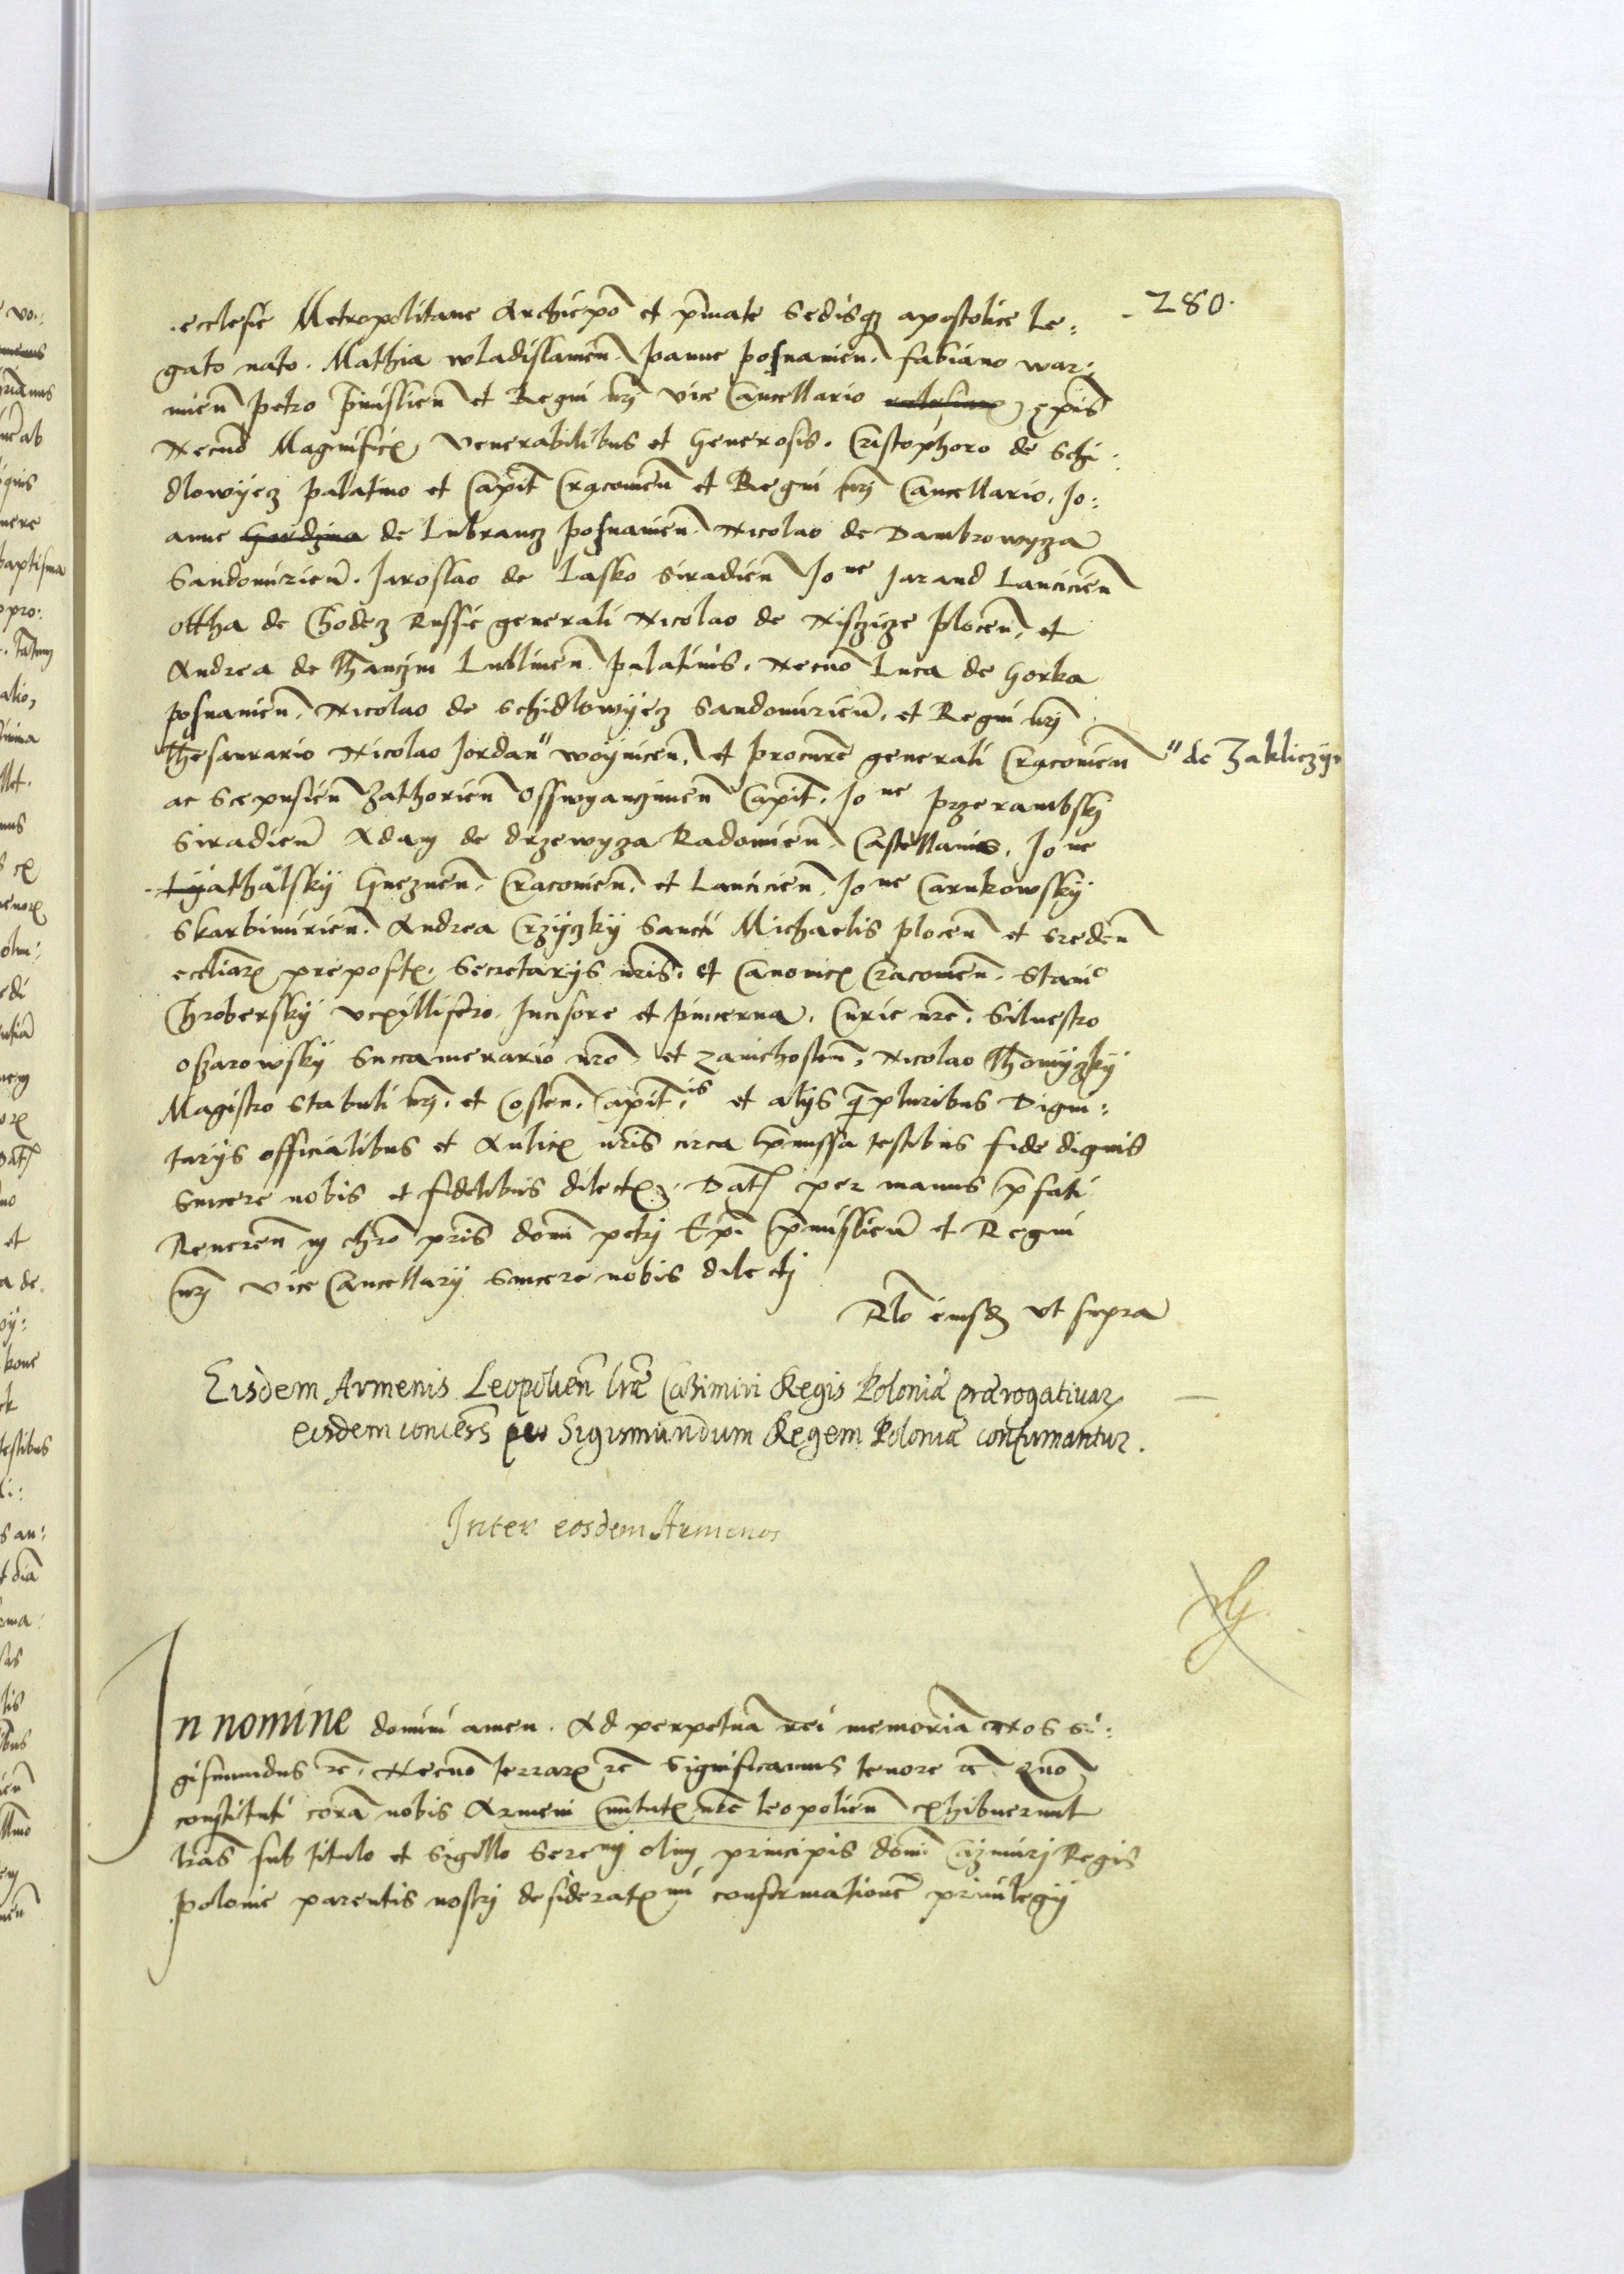 280.
ecclesie Metropolitane Archiepō et p̄mate Sedisq3 apostolice Le:
gato nato. Mathia wladislauien̄. Joanne posnanien̄. fabiano war:
mien̄ petro p̄mislien̄ et Regni nr̄j vice Cancellario ep̄is
Necnō Magnificꝭ venerabilibus et Generosis. Cristophoro de Schi
dlowijecz palatino et Capit̄ Cracouien̄ et Regni nr̄j Cancellario. Jo:
anne de Lubrancz posnanien̄. Nicolao de Dambrowycza
Sandomirien̄. Jaroslao de Lasko Siradien̄ Jo ne Jarand Lancicien̄
ottha de Chodecz Russie generali Nicolao de Nisczicze plocen̄. et
Andrea de Thanczin Lublinen̄ palatinis. Necnō Luca de Gorka
posnanien̄. Nicolao de Schidlowijecz Sandomirien̄. et Regni nr̄j
Thesaurario Nicolao Jordan" woynicen̄. et procurē generali Cracouien̄ " de Zakliczijn
ac Scepusien̄ Zathorien̄ Osswyanczimen̄ Capit̄. Jo ne przerambskj
Siradien̄ Adam de drzewycza Radomien̄. Castellanis. Jo ne
Lyathalskij Gneznen̄. Cracouien̄. et Lancicien̄. Jo ne Carnkowskij
Skarbimirien̄. Andrea Crzyczkij Sancti Michaelis plocen̄ et Sreden̄
eccliarꝭ prepostꝭ. Secretarijs nr̄is. et Canonicꝭ Cracouien̄. Stanō
Chroberskij vexillifero. Incisore et pincerna. Curie nr̄e. Siluestro
ozarowskij Succamerario nr̄o. et zawichosten̄. Nicolao Thomijczkij
Magistro Stabuli nr̄j. et Costen̄. Capit̄.is et alijs q̄pluribus Digni:
tarijs officialibus et Aulicꝭ nr̄is circa p̄missa testibus fide dignis
Sincere nobis et fidelibus dilectꝭ. Dat̄ per manus p̄fati
Reueren̄ in chrō pr̄is domī petrj Epī p̄mislien̄ et Regni
nr̄j vice Cancellarij Sincere nobis dilectj
Rlō eiusdē vt supra
Eisdem Armenis Leopolien̄ lr̄æ Casimiri Regis Poloniæ prærogatiuarꝭ
eisdem concess̄ per Sigismundum Regem Poloniæ confirmantur.
Inter eosdem Armenos
In nomine domini amen. Ad perpetuā rei memoriā Nos Si:
gismundus rē. Necnō terrarꝭ rē Significamus tenore rē. Quō
constituti corā nobis Armeni Ciuitatꝭ nr̄e leopolien̄ exhibuerunt
lr̄as sub titulo et Sigillo Sere mj olim principis domī Cazimirj Regis
polonie parentis nostrj desideratꝭ mi confirmationē priuilegij